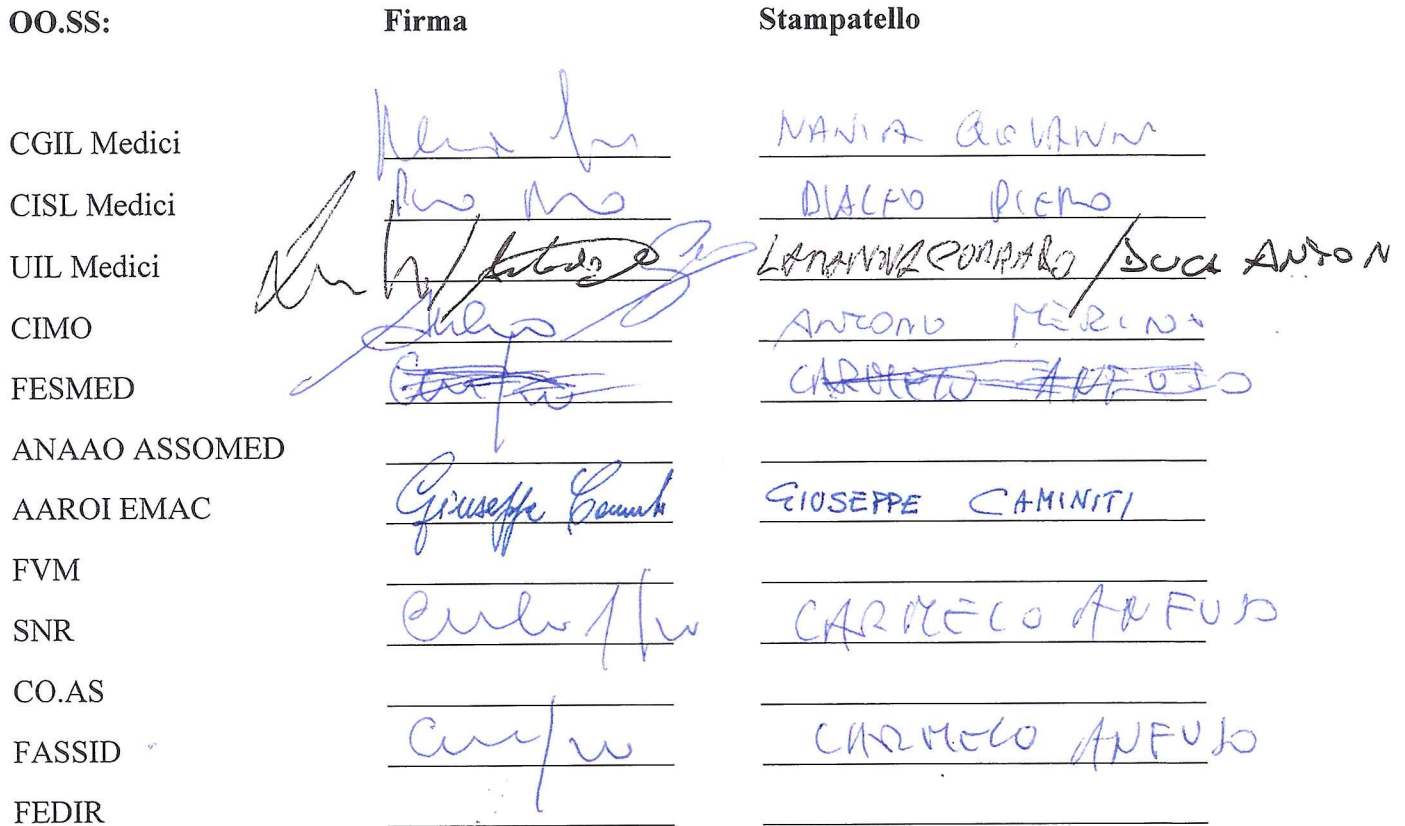 OO.SS: Firma Stampatello
CGIL Medici NANIA GIOVANNI
CISL Medici PIERO
UIL Medici / DUCA ANTON
CIMO ANTONIO MERINO
FESMED CARMELO ANFUSO
ANAAO ASSOMED
AAROI EMAC Giuseppe Caminiti GIUSEPPE CAMINITI
FVM
SNR CARMELO ANFUSO
CO.AS
FASSID CARMELO ANFUSO
FEDIR